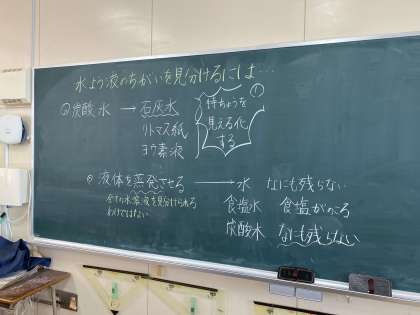 水よう液のちがいを見分けるには…
②炭酸水 → 石灰水
リトマス紙
ヨウ素液
①
特ちょうを
見える化
する
液体を蒸発させる → 水 なにも残らない
全ての水溶液を見分けられる
わけではない
食塩水 食塩がのこる
炭酸水 なにも残らない